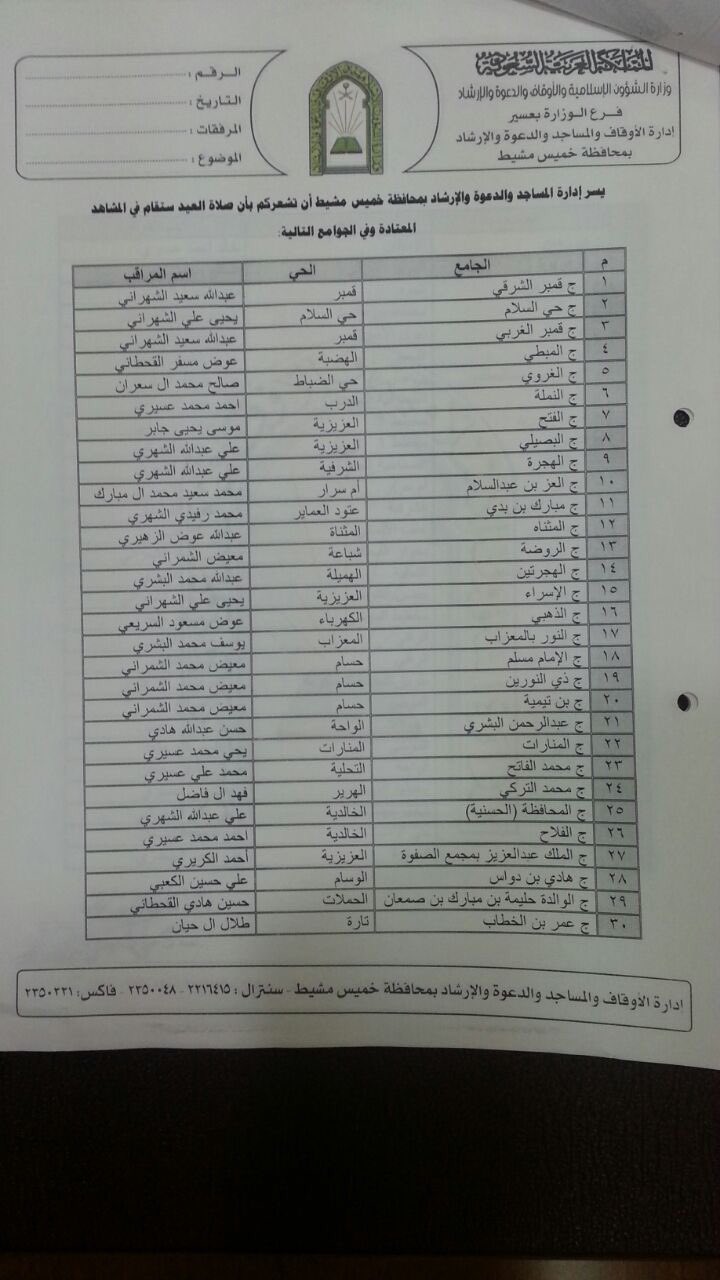 المملكة العربية السعودية
وزارة الشؤون الإسلامية والأوقاف والدعوة والإرشاد
فرع الوزارة بعسير
إدارة الأوقاف والمساجد والدعوة والإرشاد
بمحافظة خميس مشيط
الرقم :
التاريخ :
المرفقات :
الموضوع :
يسر إدارة المساجد والدعوة والإرشاد بمحافظة خميس مشيط أن تشعركم بأن صلاة العيد ستقام في المشاهد
المعتادة وفي الجوامع التالية:
م الجامع الحي اسم المراقب
١ ج قمبر الشرقي قمبر عبدالله سعيد الشهراني
٢ ج حي السلام حي السلام يحيى علي الشهراني
٣ ج قمبر الغربي قمبر عبدالله سعيد الشهراني
٤ ج المبطي الهضبة عوض مسفر القحطاني
٥ ج الغروي حي الضباط صالح محمد ال سعران
٦ ج النملة الدرب احمد محمد عسيري
٧ ج الفتح العزيزية موسى يحيى جابر
٨ ج البصيلي العزيزية علي عبدالله الشهري
٩ ج الهجرة الشرفية علي عبدالله الشهري
١٠ ج العز بن عبدالسلام أم سرار محمد سعيد محمد ال مبارك
١١ ج مبارك بن بدي عتود العماير محمد رفيدي الشهري
١٢ ج المثناه المثناة عبدالله عوض الزهيري
١٣ ج الروضة شباعة معيض الشمراني
١٤ ج الهجرتين الهميلة عبدالله محمد البشري
١٥ ج الإسراء العزيزية يحيى علي الشهراني
١٦ ج الذهبي الكهرباء عوض مسعود السريعي
١٧ ج النور بالمعزاب المعزاب يوسف محمد البشري
١٨ ج الإمام مسلم حسام معيض محمد الشمراني
١٩ ج ذي النورين حسام معيض محمد الشمراني
٢٠ ج بن تيمية حسام معيض محمد الشمراني
٢١ ج عبدالرحمن البشري الواحة حسن عبدالله هادي
٢٢ ج المنارات المنارات يحي محمد عسيري
٢٣ ج محمد الفاتح التحلية محمد علي عسيري
٢٤ ج محمد التركي الهرير فهد ال فاضل
٢٥ ج المحافظة (الحسنية) الخالدية علي عبدالله الشهري
٢٦ ج الفلاح الخالدية احمد محمد عسيري
٢٧ ج الملك عبدالعزيز بمجمع الصفوة العزيزية أحمد الكريري
٢٨ ج هادي بن دواس الوسام علي حسين الكعبي
٢٩ ج الوالدة حليمة بن مبارك بن صمعان الحملات حسين هادي القحطاني
٣٠ ج عمر بن الخطاب تارة طلال ال حيان
ادارة الأوقاف والمساجد والدعوة والإرشاد بمحافظة خميس مشيط - سنترال : ٢٢١٦٤١٥ - ٢٣٥٠٠٤٨ - فاكس: ٢٣٥٠٢٣١